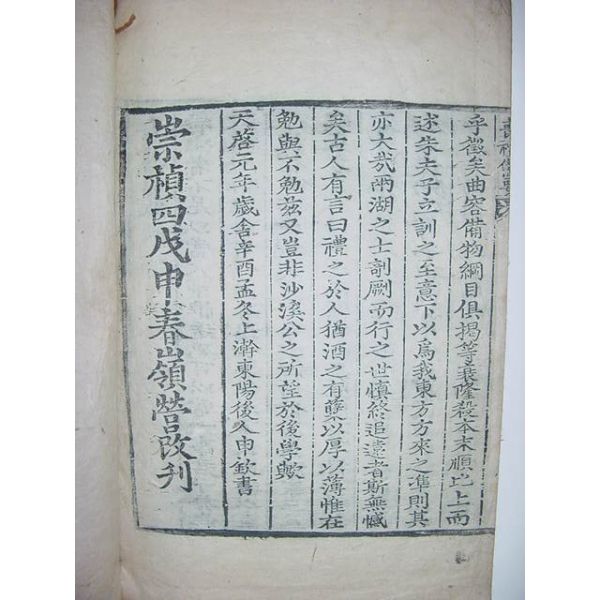 乎徵矣曲容備物綱目俱揭等衰隆殺本末順比上而
述朱夫子立訓之至意下以爲我東方方來之准則其
亦大哉兩湖之士剞劂而行之世愼終追遠者斯無憾
矣古人有言曰禮之於人猶酒之有蘖以厚以薄惟在
勉與不勉玆又豈非沙溪公之所望於後學歟
天啓元年歲舍辛酉孟冬上澣東陽後人申欽書
崇禎四戊申春嶺營改刊